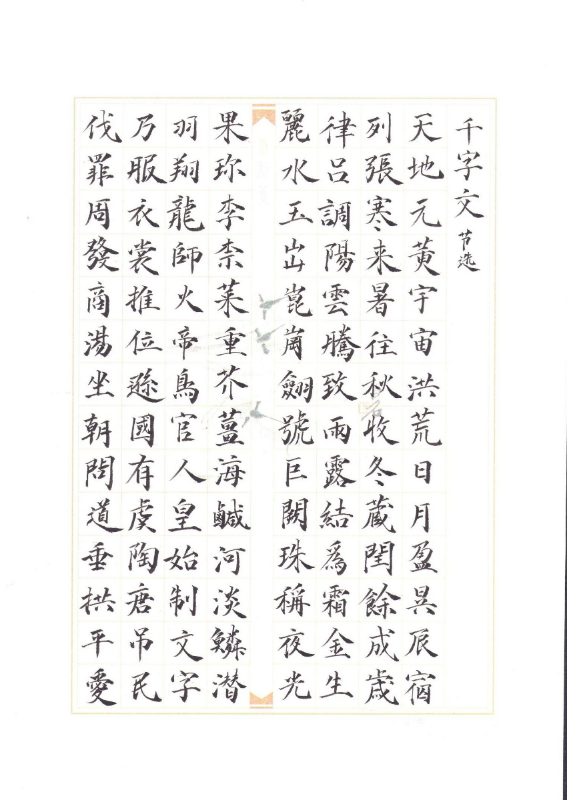 千字文 节选
天地元黃宇宙洪荒日月盈昃辰宿
列張寒来暑往秋收冬藏閏餘成歲
律呂調陽雲騰致雨露結爲霜金生
麗水玉出崑崗劒號巨闕珠稱夜光
果珍李柰菜重芥薑海鹹河淡鱗潜
羽翔龍師火帝鳥官人皇始制文字
乃服衣裳推位遜國有虞陶唐吊民
伐罪周發商湯坐朝問道垂拱平愛